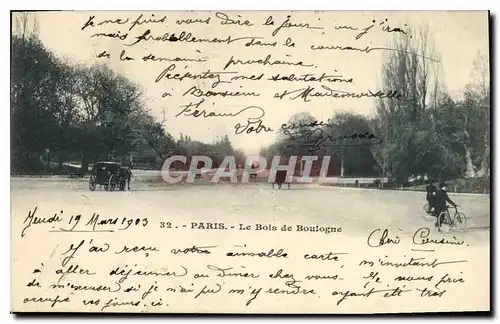 Je ne puis vous dire le jour où j'irai
mais probablement dans le courant
de la semaine prochaine
Présentez mes salutations
à Monsieur et Mademoiselle
Féraud
Votre cousin
CHARPI
Jeudi 19 Mars 1903
32. - PARIS. - Le Bois de Boulogne
Chère Cousine
J'ai reçu votre aimable carte m'invitant
à aller déjeuner ou dîner chez vous. Je vous prie
de m'excuser si je n'ai pu m'y rendre, ayant été très
occupé ces jours-ci.